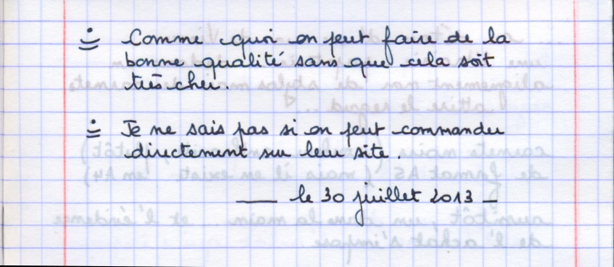 ÷ Comme quoi on peut faire de la
bonne qualité sans que cela soit
très cher.
÷ Je ne sais pas si on peut commander
directement sur leur site.
— le 30 juillet 2013 —